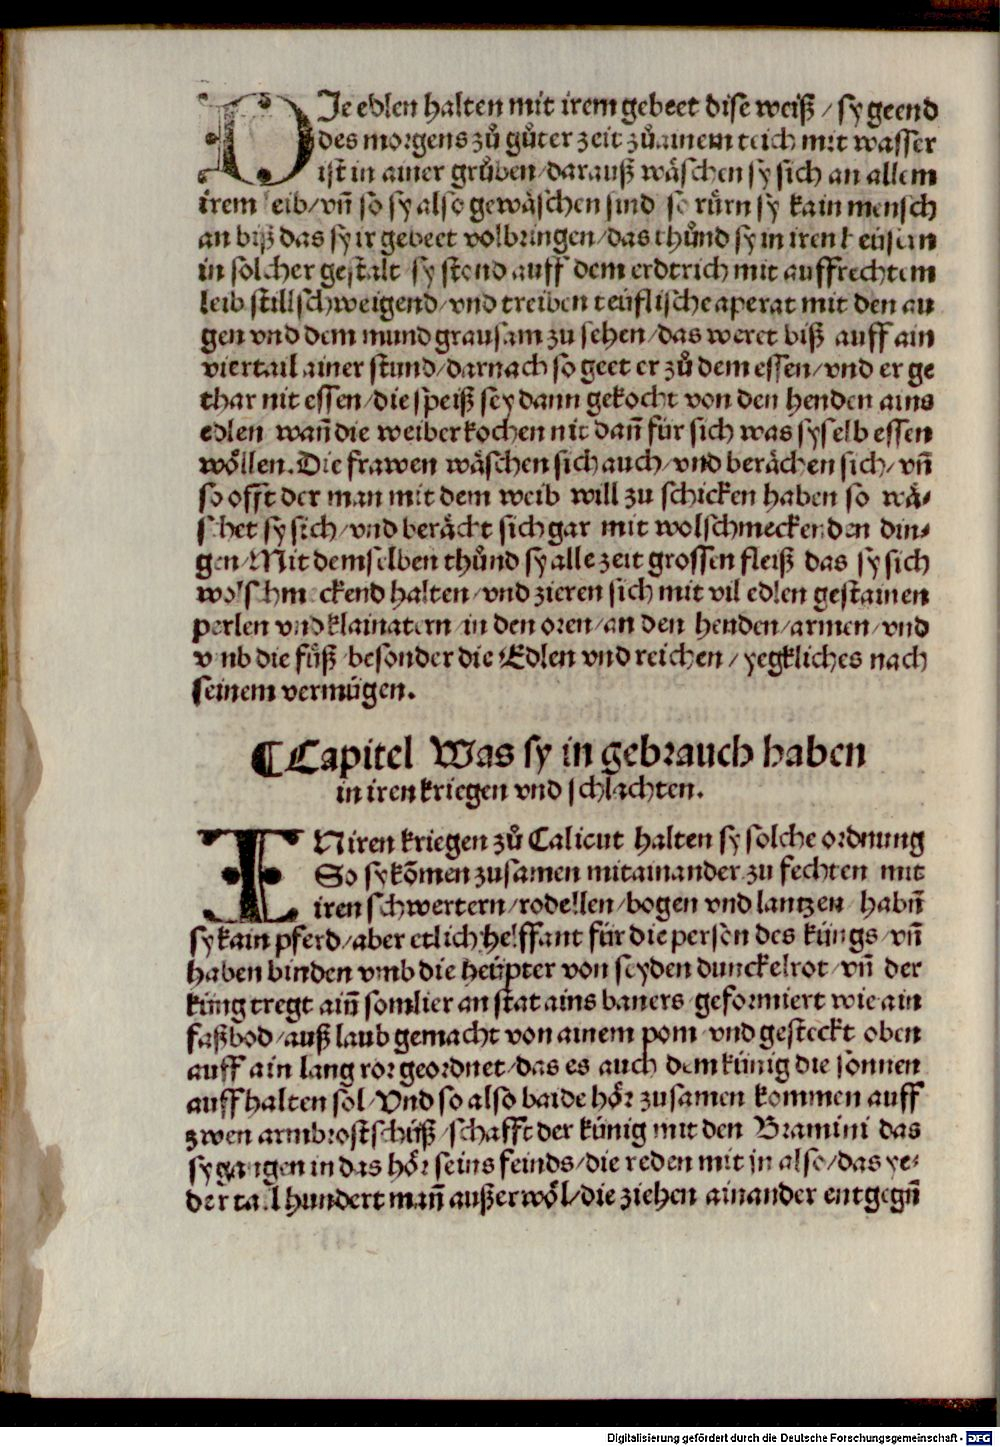 DIe edlen halten mit irem gebeet dise weiß / sy geend
des morgens zů gůter zeit zů ainem teich mit wasser
ist in ainer grůben / darauß wäschen sy sich an allem
irem leib / vñ so sy also gewäschen sind so rürn sy kain mensch
an biß das sy ir gebeet volbringen / das thůnd sy in iren heüsern
in solcher gestalt sy stend auff dem erdtrich mit auffrechtem
leib stillschweigend / vnd treiben teüflische aperat mit den au
gen vnd dem mund grausam zu sehen / das weret biß auff ain
viertail ainer stund / darnach so geet er zů dem essen / vnd er ge
thar nit essen / die speiß sey dann gekocht von den henden ains
edlen wañ die weiber kochen nit dañ für sich was sy selb essen
wöllen. Die frawen wäschen sich auch / vnd berächen sich / vñ
so offt der man mit dem weib will zu schicken haben so wä⸗
schet sy sich / vnd berächt sich gar mit wolschmeckenden din⸗
gen / Mit demselben thůnd sy alle zeit grossen fleiß das sy sich
wolschmeckend halten / vnd zieren sich mit vil edlen gestainen
perlen vnd klainatern / in den oren / an den henden / armen / vnd
vmb die füß besonder die Edlen vnd reichen / yegkliches nach
seinem vermügen.
¶ Capitel Was sy in gebrauch haben
in iren kriegen vnd schlachten.
INiren kriegen zů Calicut halten sy solche ordnung
So sy kõmen zusamen mitainander zu fechten mit
iren schwertern / rodellen / bogen vnd lantzen / habñ
sy kain pferd / aber etlich helffant für die person des küngs / vñ
haben binden vmb die heüpter von seyden dunckelrot / vñ der
küng tregt aiñ somlier an stat ains baners geformiert wie ain
faßbod / auß laub gemacht von ainem pom vnd gesteckt oben
auff ain lang ror geordnet / das es auch dem künig die sonnen
auffhalten sol / Vnd so also baide hör zusamen kommen auff
zwen armbrostschüß / schafft der künig mit den Bramini das
sy gangen in das hör seins feinds / die reden mit jn also / das ye⸗
der tail hundert mañ außerwöl / die ziehen ainander entgegñ
Digitalisierung gefördert durch die Deutsche Forschungsgemeinschaft - DFG